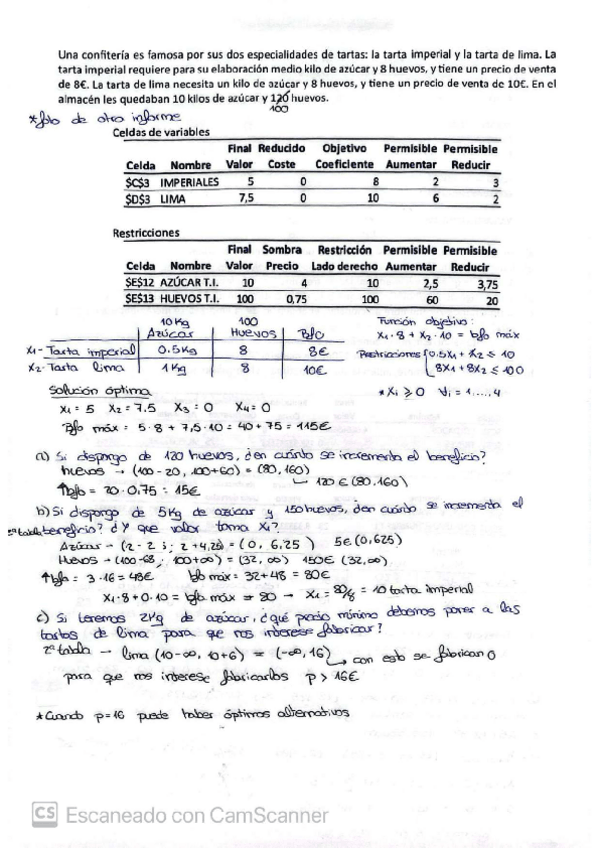 Una confitería es famosa por sus dos especialidades de tartas: la tarta imperial y la tarta de lima. La
tarta imperial requiere para su elaboración medio kilo de azúcar y 8 huevos, y tiene un precio de venta
de 8€. La tarta de lima necesita un kilo de azúcar y 8 huevos, y tiene un precio de venta de 10€. En el
almacén les quedaban 10 kilos de azúcar y 120 huevos.
100
*folo de otro informe
Celdas de variables
Final Reducido Objetivo Permisible Permisible
Celda Nombre Valor Coste Coeficiente Aumentar Reducir
$C$3 IMPERIALES 5 0 8 2 3
$D$3 LIMA 7,5 0 10 6 2
Restricciones
Final Sombra Restricción Permisible Permisible
Celda Nombre Valor Precio Lado derecho Aumentar Reducir
$E$12 AZÚCAR T.I. 10 4 10 2,5 3,75
$E$13 HUEVOS T.I. 100 0,75 100 60 20
10Kg 100 Función objetivo:
Azúcar Huevos Bfo x1·8 + x2·10 = bfo máx
x1- Tarta imperial 0.5Kg 8 8€ Restricciones { 0.5x1 + x2 ≤ 10
x2- Tarta lima 1Kg 8 10€ 8x1 + 8x2 ≤ 100
Solución óptima * xi ≥ 0 ∀i = 1....,4
x1 = 5 x2 = 7.5 x3 = 0 x4 = 0
Bfo máx = 5·8 + 7,5·10 = 40 + 75 = 115€
a) Si dispongo de 120 huevos, ¿en cuánto se incrementa el beneficio?
huevos → (100-20, 100+60) = (80,160)
120 ∈ (80.160)
↑bfo = 20·0.75 = 15€
b) Si dispongo de 5Kg de azúcar y 150 huevos, ¿en cuánto se incrementa el
2ª tabla beneficio? ¿Y que valor toma x1?
Azúcar → (2-2 ; 2+4,25) = (0, 6.25) 5∈(0,625)
Huevos → (100-68; 100+∞) = (32, ∞) 150∈(32,∞)
↑bfo = 3·16 = 48€ bfo máx = 32+48 = 80€
x1·8 + 0·10 = bfo máx = 80 → x1 = 80/8 = 10 tarta imperial
c) Si tenemos 2Kg de azúcar, ¿qué precio mínimo debemos poner a las
tartas de lima para que nos interese fabricar?
2ª tabla → lima (10-∞, 10+6) = (-∞, 16)
con esto se fabrican 0
para que nos interese fabricarlos p > 16€
*Cuando p=16 puede haber óptimos alternativos
CS Escaneado con CamScanner